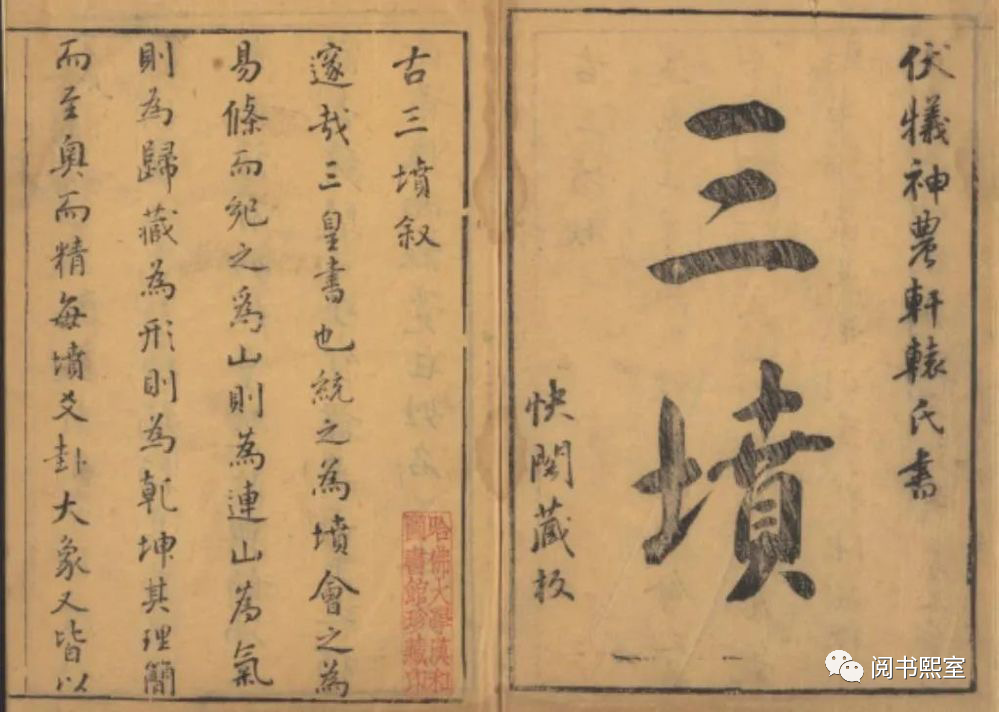 伏犧神農軒轅氏書
三墳
快閣藏板
古三墳叙
邃哉三皇書也統之為墳會之為
易條而紀之爲山則為連山為氣
則為歸藏為形則為乾坤其理簡
而至奧而精每墳爻卦大象又皆以
哈佛大學漢和
圖書館珍藏印
阅书熙室